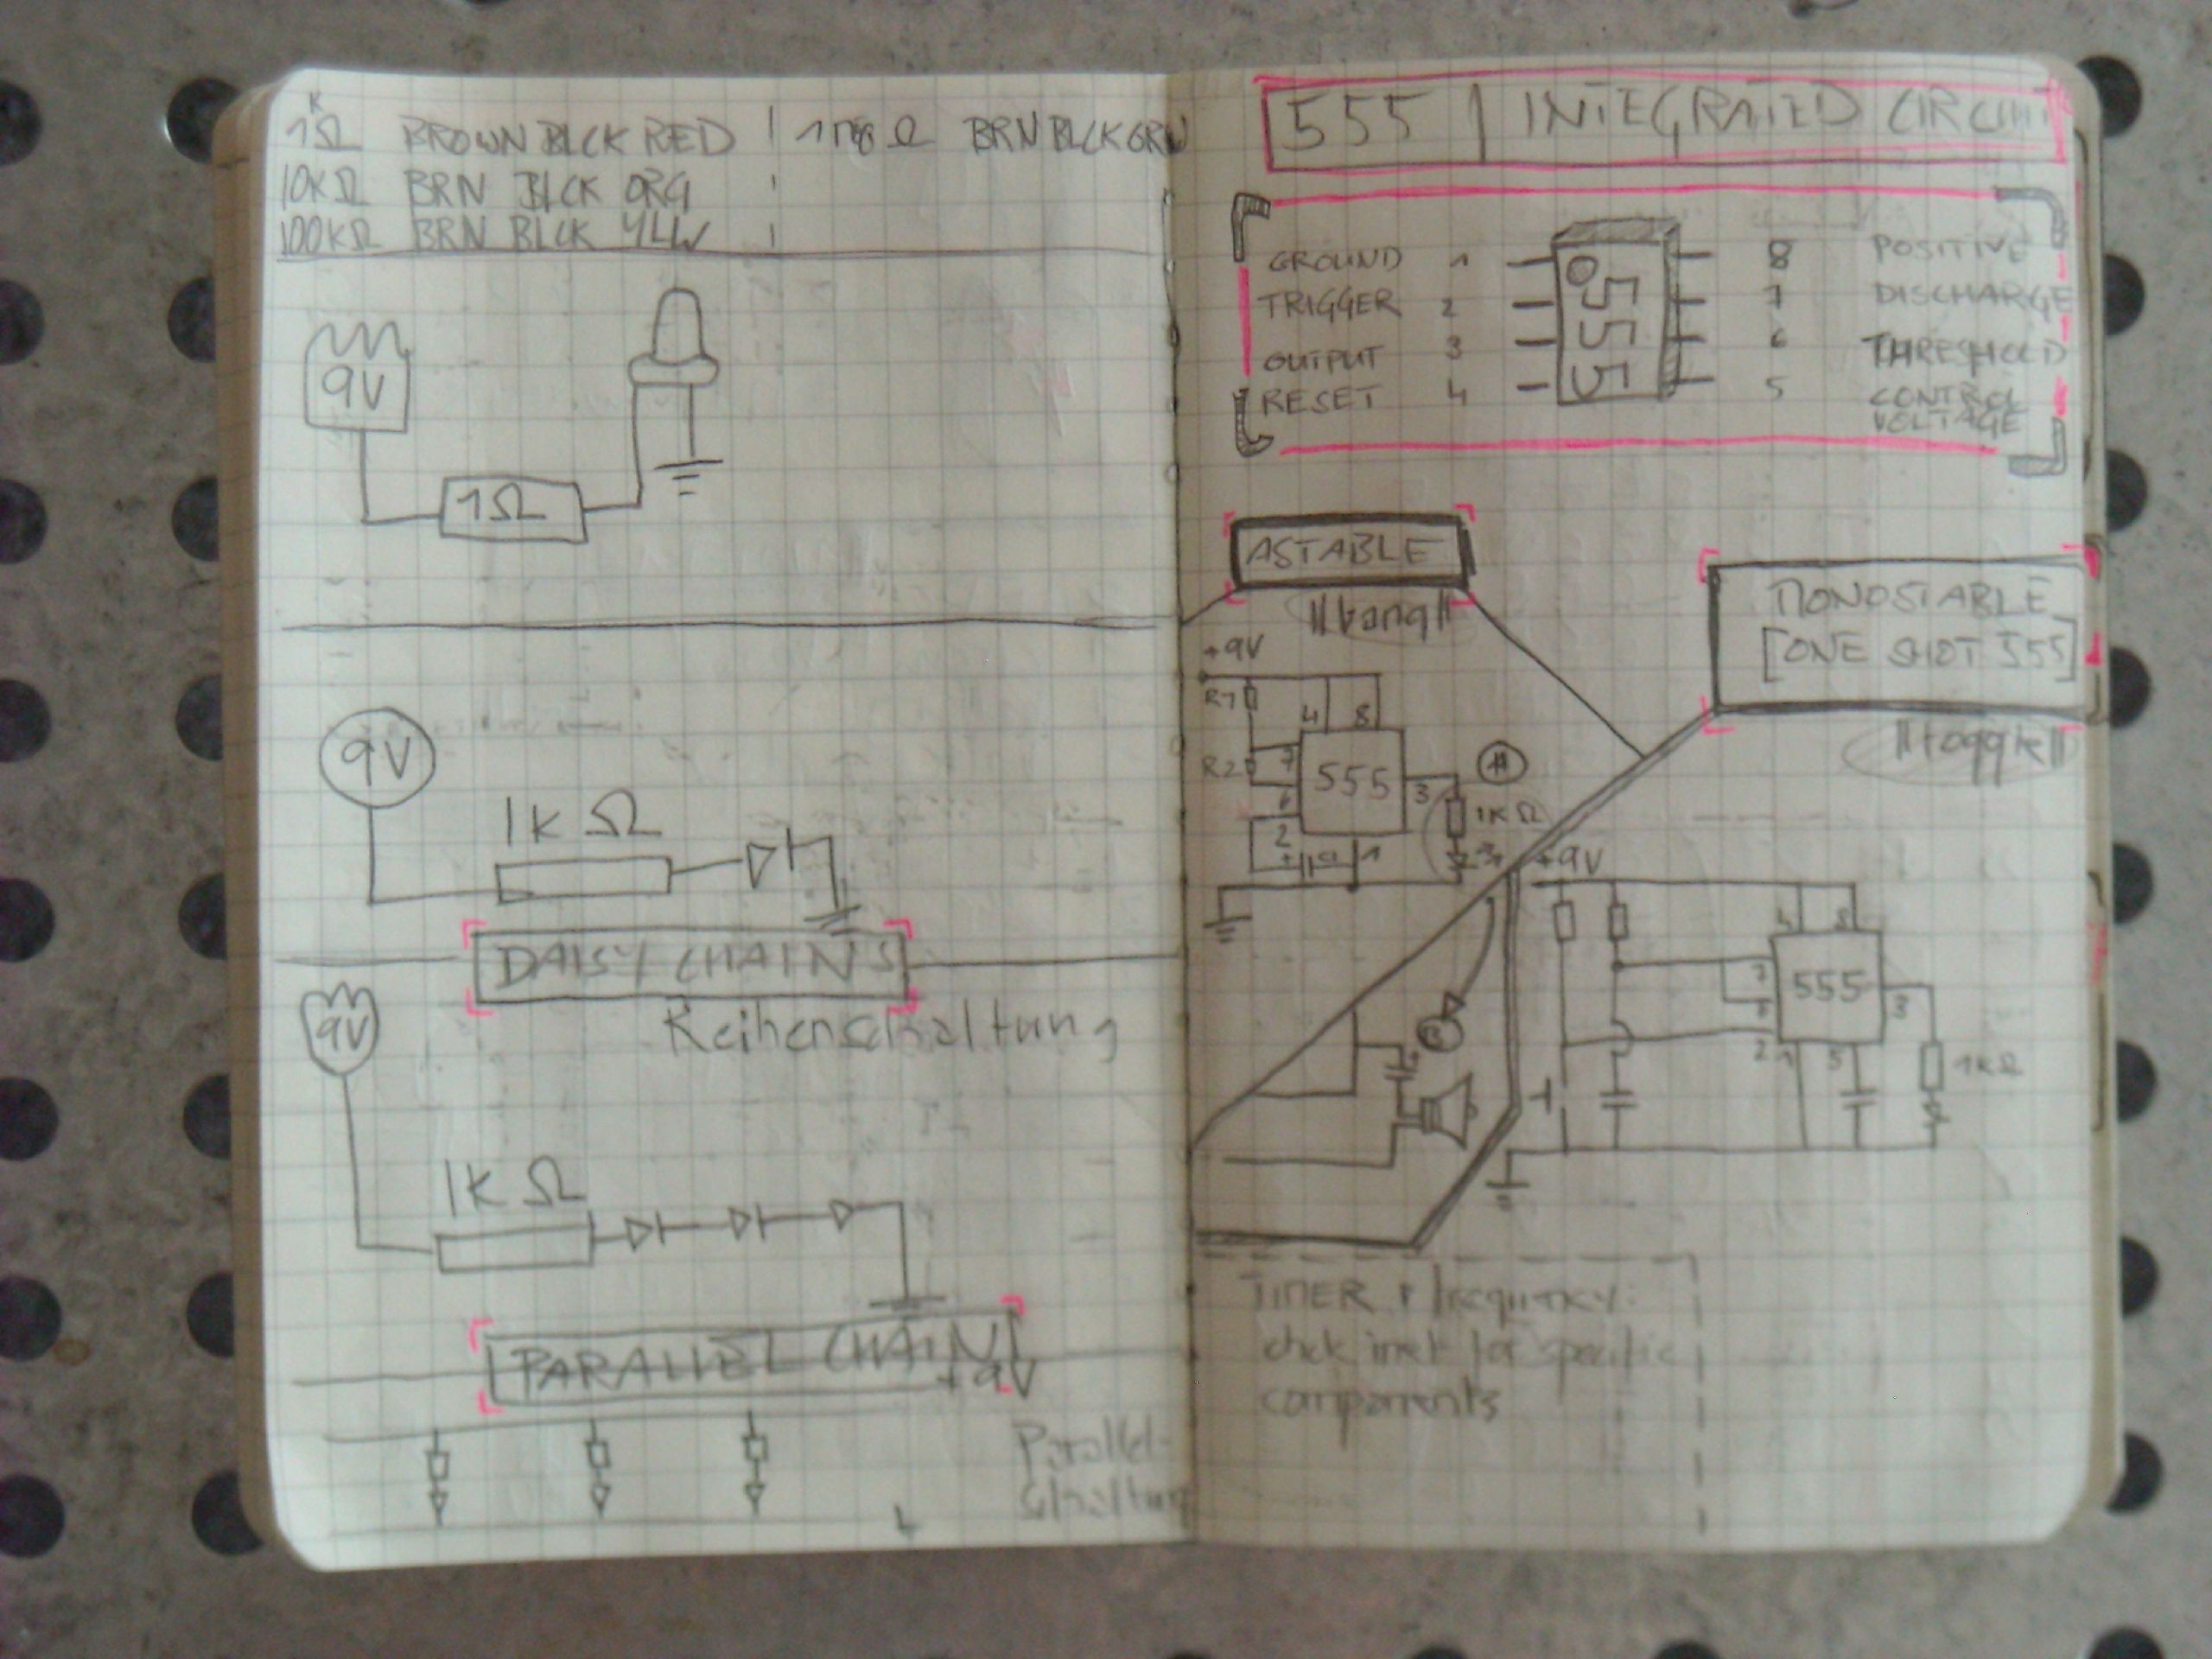 1KΩ BROWN BLCK RED | 1 MEG Ω BRN BLCK GRN
10KΩ BRN BLCK ORG
100KΩ BRN BLCK YLLW
9V
1Ω
9V
1K Ω
DAISY CHAINS
Reihenschaltung
9V
1K Ω
PARALLEL CHAIN
+9V
Parallel-
schaltung
555 | INTEGRATED CIRCUIT
GROUND 1 8 POSITIVE
TRIGGER 2 7 DISCHARGE
OUTPUT 3 6 THRESHOLD
RESET 4 5 CONTROL
VOLTAGE
555
ASTABLE
||bang||
+9V
R1
4 8
R2 7
555
3
6
2
1
1K Ω
MONOSTABLE
[ONE SHOT 555]
||toggle||
+9V
4 8
7
555
6
3
2 1 5
1KΩ
TIMER + frequency:
chck inet for specific
components